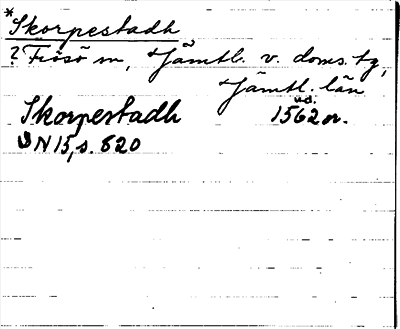 *Skorpestadh
? Frösö sn, Jämtl. v. doms. tg,
Jämtl. län
Skorpestadh
ud.
1562 or.
DN 15, s. 820